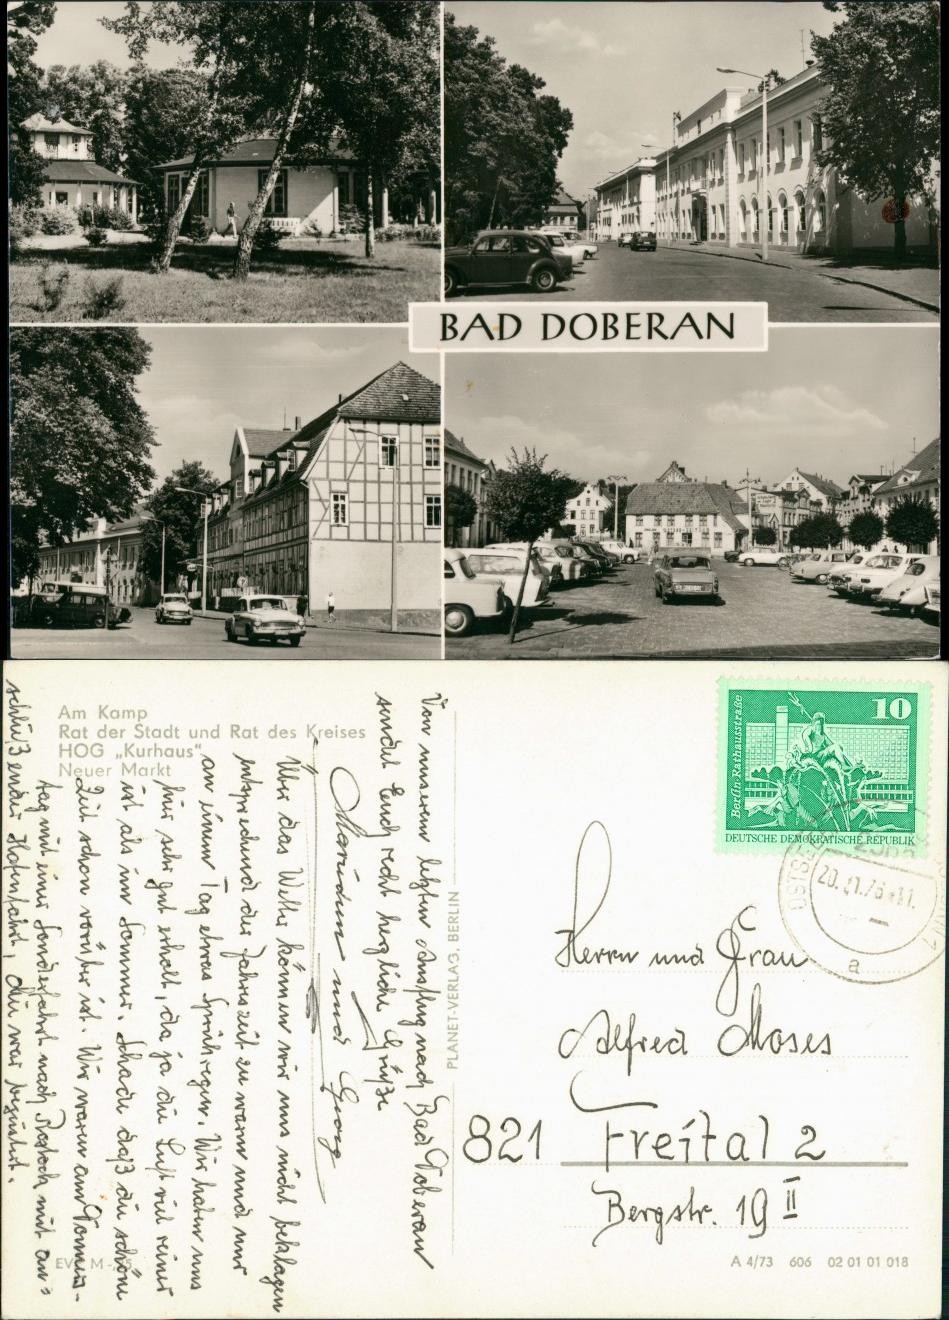 BAD DOBERAN
Am Kamp
Rat der Stadt und Rat des Kreises
HOG „Kurhaus"
Neuer Markt
Von unserem letzten Ausflug nach Bad Doberan
sendet Euch recht herzliche Grüße
und Georg
Über das Wetter können wir uns nicht beklagen
entsprechend der Jahreszeit zu warm und nur
an einem Tag etwas Sprühregen. Wir haben uns
hier sehr gut erholt, da ja die Luft viel reiner
ist als im Sommer. Schade daß die schöne
Zeit schon vorüber ist. Wir waren am Donners-
tag mit einer Sonderfahrt nach Rostock mit an-
schließender Hafenfahrt, die war
PLANET-VERLAG, BERLIN
10
Berlin-Rathausstraße
DEUTSCHE DEMOKRATISCHE REPUBLIK
OSTSEEBAD
a
Herrn und Frau
Alfred Moses
821 Freital 2
Bergstr. 19 II
A 4/73 606 02 01 01 018